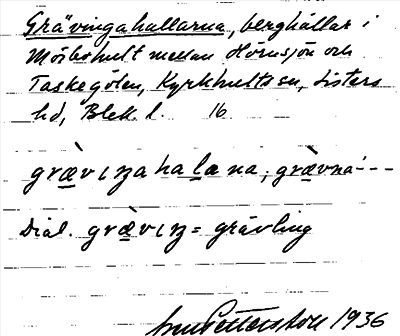 Grävingahallarna, berghällar i
Mörbohult mellan Hörnsjön och
Taskegölen, Kyrkhults sn, Listers
hd, Blek. l. 16
græ̀vıŋahaḷana, græ̀vna'---
Dial. græ̀vıŋ = grävling
Pettersson 1936